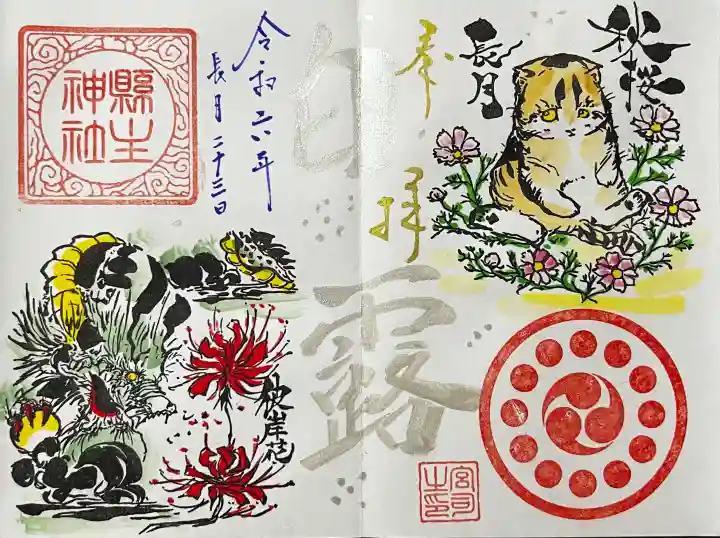 奉拝
長月
秋桜
白露
令和六年
長月二十三日
縣主
神社
彼岸花
宮司
之印